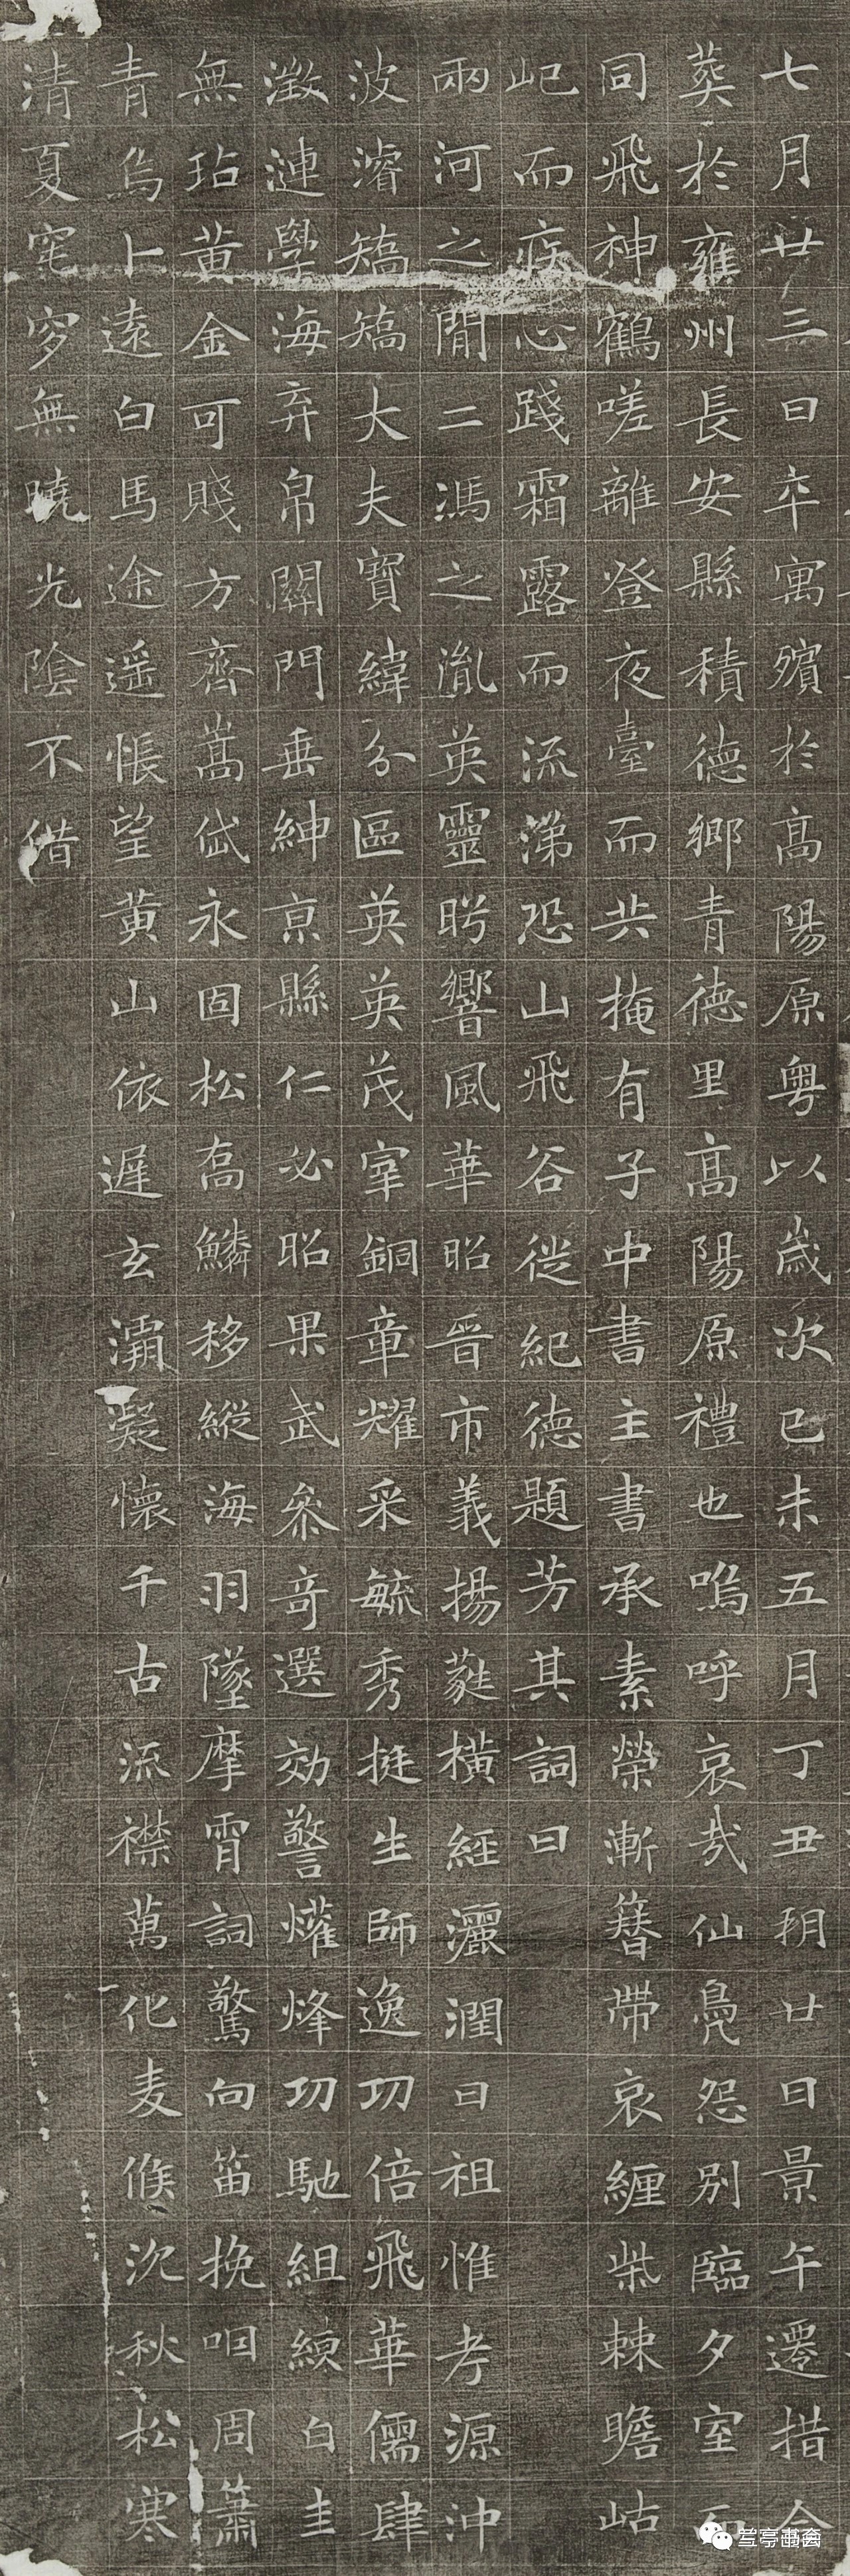 七月廿三日卒寓殯於高陽原粵以歲次己未五月丁丑朔廿日景午遷措合
葬於雍州長安縣積德鄉青德里高陽原禮也嗚呼哀哉仙鳧怨別臨夕室
同飛神鶴嗟離登夜臺而共掩有子中書主書承素榮漸簪帶哀纏柴棘瞻岵
屺而疚心踐霜露而流涕恐山飛谷徙紀德題芳其詞曰
兩河之間二馮之胤英靈盻響風華昭晉市義揚蕤橫經灑潤曰祖惟考源沖
波濬矯矯大夫寶緯分區英英茂宰銅章耀采毓秀挺生師逸功倍飛華儒肆
激漣學海弃帛關門垂紳京縣仁必昭果武叅奇選効警爟烽功馳組練白圭
無玷黃金可賤方齊嵩岱永固松喬鱗移縱海羽墜摩霄詞驚向笛挽咽周簫
青烏卜遠白馬途遥悵望黃山依遲玄灞凝懷千古流襟萬化麦候沉秋松寒
清夏窀穸無曉光陰不借
兰亭书会